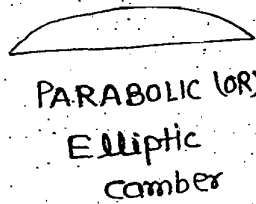 PARABOLIC (OR)
Elliptic
camber